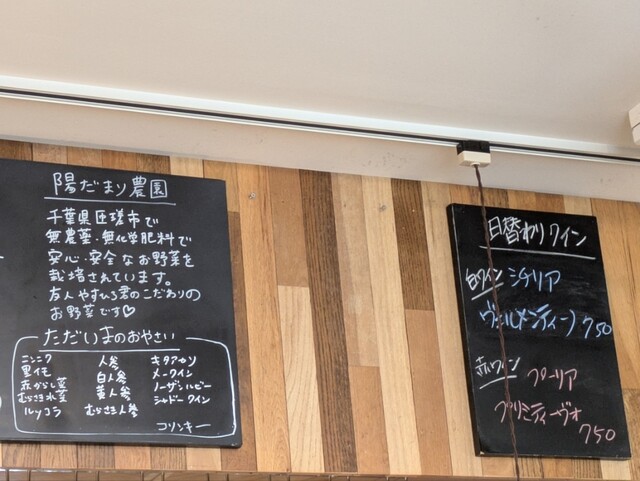 陽だまり農園
千葉県匝瑳市で
無農薬・無化学肥料で
安心・安全なお野菜を
栽培されています。
友人やすひろ君のこだわりの
お野菜です♡
ただいまのおやさい
ニンニク 人参 キタアカリ
里イモ 白人参 メークイン
赤からし菜 黄人参 ノーザンルビー
むらさき水菜 むらさき人参 シャドークイン
ルッコラ コリンキー
日替わりワイン
白ワイン シチリア
ヴェルメンティーノ 750
赤ワイン プーリア
プリミティーヴォ
750